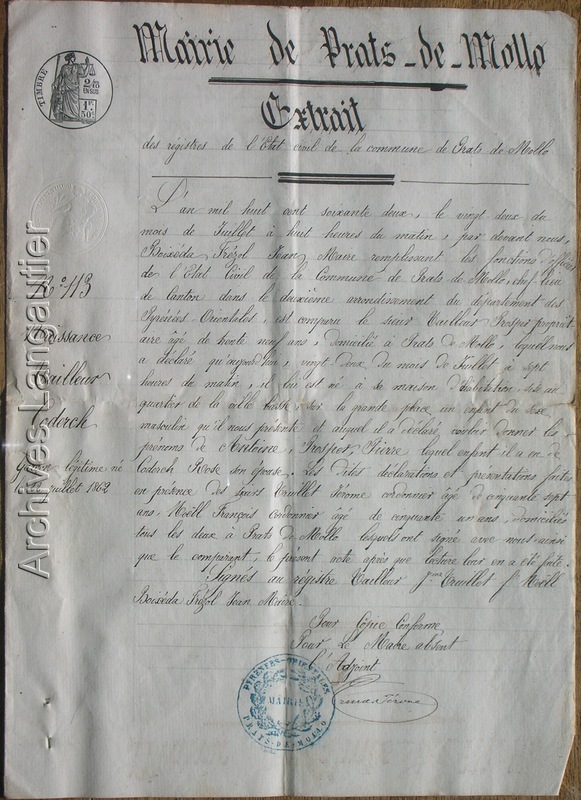 Mairie de Prats-de-Mollo
Extrait
des régistres de l'Etat civil de la commune de Prats de Mollo
TIMBRE
2/10
EN SUS
1 Fr.
50 c.
L'an mil huit cent soixante deux, le vingt deux du
mois de Juillet à huit heures du matin, par devant nous,
Boixéda Trézol Jean Maire remplissant les fonctions d'officier
de l'Etat Civil de la Commune de Prats de Mollo, chef lieu
de Canton dans le deuxième arrondissement du département des
Pyrénées Orientales, est comparu le sieur Vailleur Prosper propriét
aire âgé de trente neuf ans, domicilié à Prats de Mollo, lequel nous
a déclaré qu'aujourd'hui, vingt deux du mois de Juillet à sept
heures du matin, il lui est né à sa maison d'habitation, sise au
quartier de la ville basse sur la grande place un enfant du sexe
masculin qu'il nous présente et auquel il a déclaré vouloir donner les
prénoms de Antoine, Prosper, Pierre lequel enfant il a eu de
Coderch Rose son épouse. Les dites déclarations et présentations faites
en présence des sieurs Trullet Jérome cordonnier âgé de cinquante sept
ans, Noëll François cordonnier âgé de cinquante un ans, domiciliés
tous les deux à Prats de Mollo lesquels ont signé avec nous ainsi
que le comparant, le présent acte après que lecture leur en a été faite.
Signés au régistre Vailleur J.me Trullet F.s Noëll
Boixéda Trézol Jean Maire.
Pour Copie Conforme
Pour Le Maire absent
L'Adjoint
Jérome
N.o 113
Naissance
Vailleur
Coderch
Garçon légitime né
juillet 1862
PYRÉNÉES-ORIENTALES
MAIRIE
PRATS-DE-MOLLO
Archives Langautier